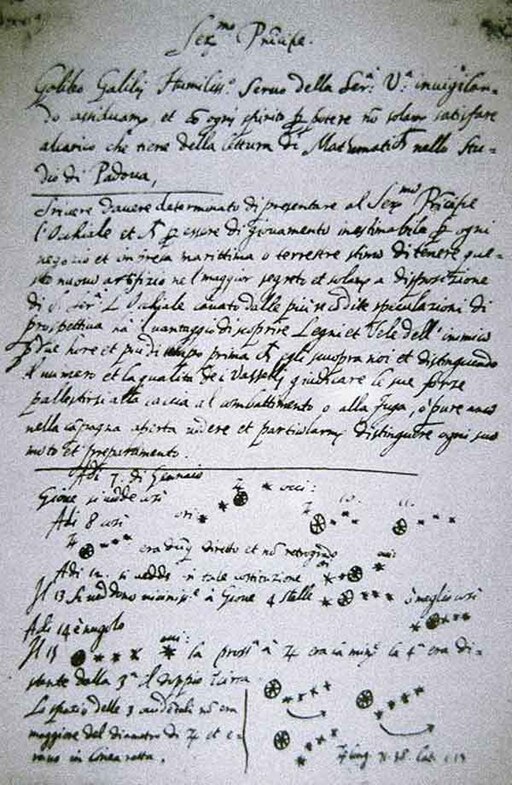 Ser.mo Principe.
Galileo Galilei Humiliss.o Servo della Ser.a V.a invigilan-
do assiduamte et con ogni spirito p potere no solam satisfare
alcarico che tiene della lettura di Mathematich nello Stu-
dio di Padova,
Scrivere d'avere determinato di presentare al Ser.mo Principe
l'Ochiale et p essere di giovamento inestimabile p ogni
negozio et impresa marittima o terrestre stimo di tenere que-
sto nuovo artifizio nel maggior segreto et solam a disposizione
di S. Ser.a L'Ochiale cavato dalle più recondite speculazioni di
prospettiva ha il vantaggio di scoprire Legni et Vele dell'inimico
p due hore et più di tempo prima ch egli scuopra noi et distinguendo
il numero et la qualità dei Vasselli giudicare le sue forze
pallestirsi alla caccia al combattimento o alla fuga, o pure anco
nella capagna aperta vedere et particolarm distinguere ogni suo
moto et preparamento.
Adi 7. di Gennaio
Gioue si uedde così
occi:
Adi 8 così
ori:
10. 11.
era dūq diretto et nō retrogrado
Adi 12. si uedde in tale costituzione
Il 13 si ueddono uiciniss.e à Gioue 4 stelle
ò meglio così
Adi 14 è nugolo
Il 15
la pross.a à 4 era la min.e la 4.a era di-
stante dalla 3.a il doppio
Lo spazio delle 3 occidentali nō era
maggiore del diametro di 4 et e-
rano in linea retta.
long. 71.38 Lat. 1.13